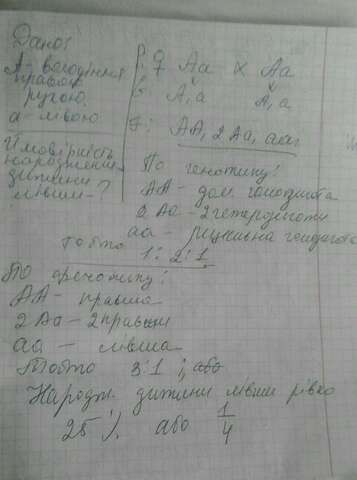 Дано:
А - володіння
правою
рукою
а - лівою
Ймовірність
народження
дитини
лівши - ?
P: ♀ Aa x Aa
G: A, a A, a
F: AA, 2 Aa, aa
По генотипу:
AA - дом гомозигота
2 Aa - 2 гетерозиготи
aa - рецесивна гомозигота
тобто 1:2:1
По фенотипу:
AA - правша
2 Aa - 2 правши
aa - лівша
Тобто 3:1 ; або
Народж. дитини лівши рівно
25% або 1/4